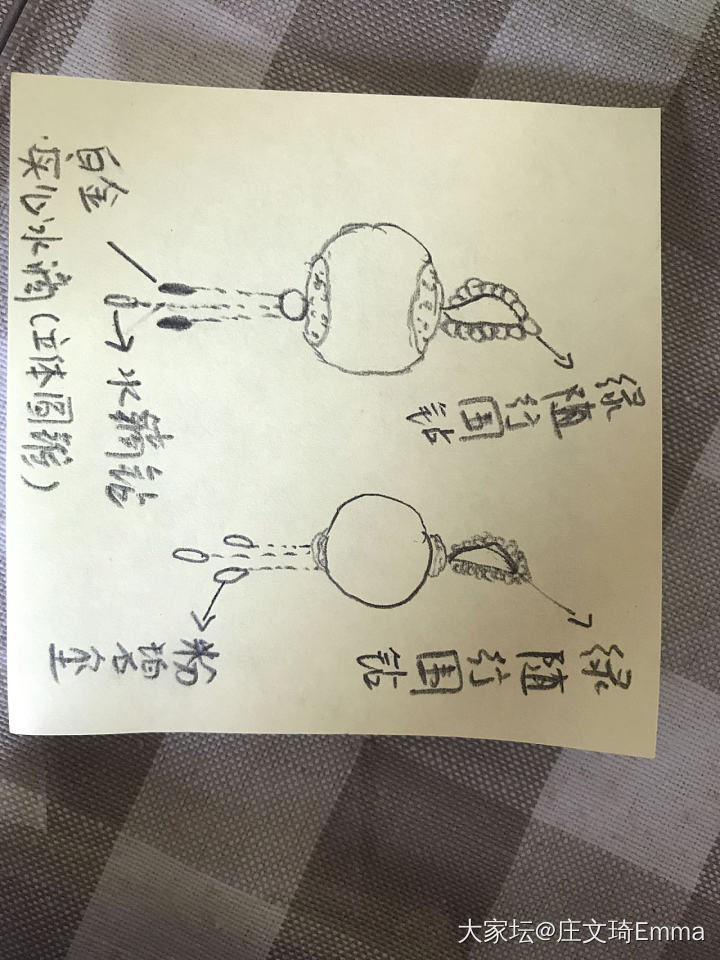 绿
随
行
围
钻
绿
随
行
围
钻
粉
水滴钻
白金
实心水滴(立体圆
大家坛@庄文琦Emma